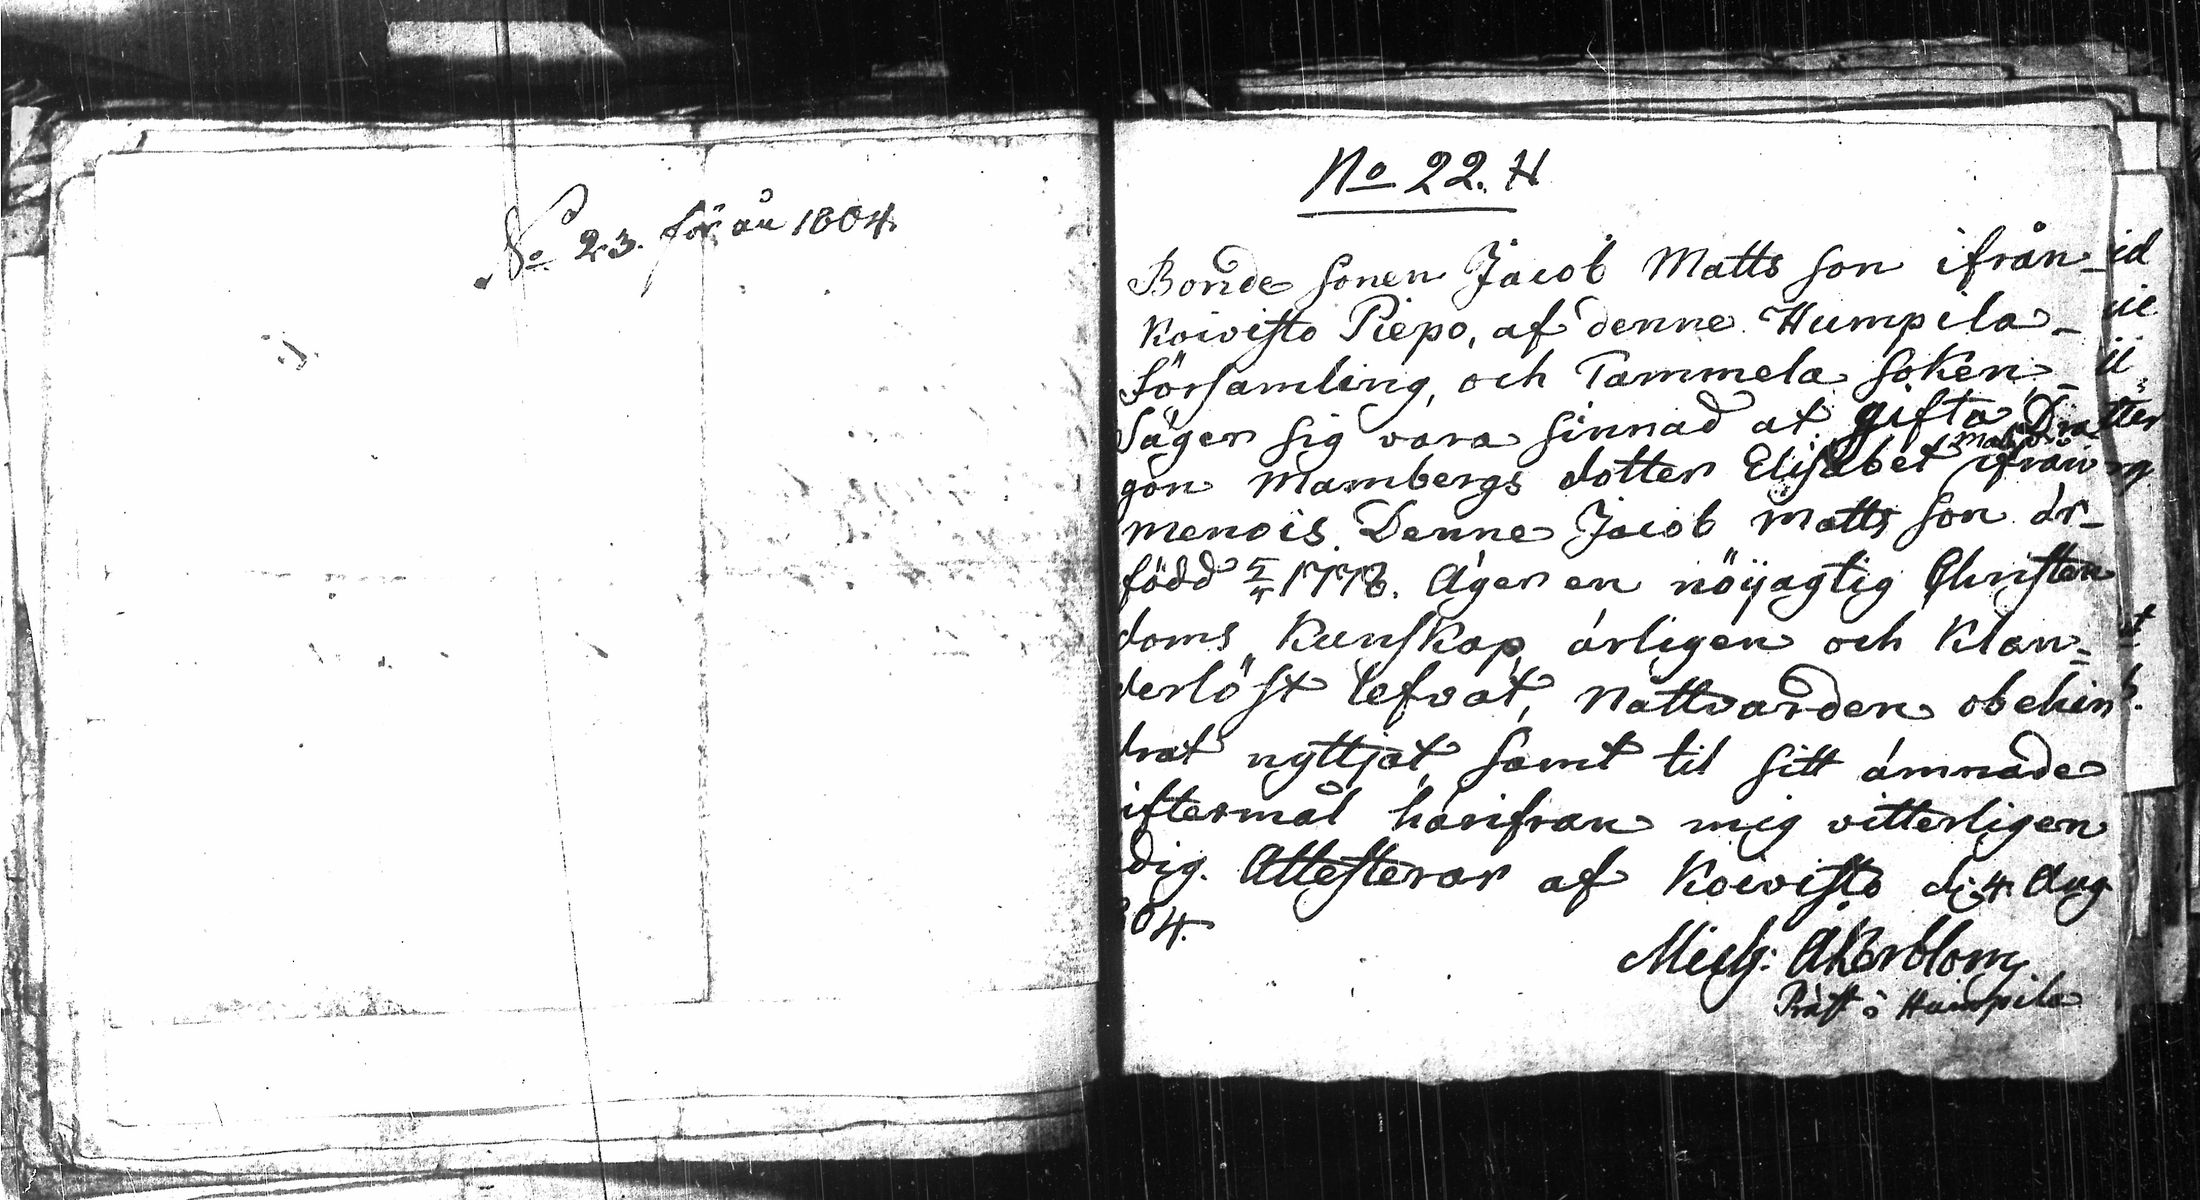 No 23. för åu 1804.
No 22. H
Bonde sonen Jacob Matts son ifrån
Koivisto Piepo, af denne Humpila
Församling, och Tammela soken
Säger sig vara sinnad at gifta Dra
gon Mambergs dotter Elisabet ifrån
menois. Denne Jacob Matts son är
född 1778. Äger en nöijagtig Christen
doms Kunskap, ärligen och Klan=
derlöst lefvat, Nattvarden obehin
drat nyttjat, samt til sitt ämnade
iftermål härifran mig vitterligen
dig. Attesterar af Koivisto d. 4. Aug
804.
Mich: Åkerblom.
Präst i Humpila